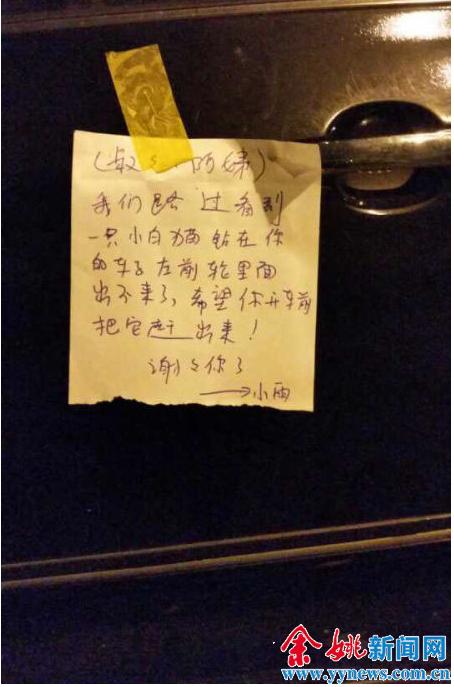 (叔々 阿姨)
我们路过看到
一只小白猫钻在你
的车子左前轮里面
出不来了,希望你开车前
把它赶出来!
谢々你了
→小雨
余姚新闻网
www.yynews.com.cn